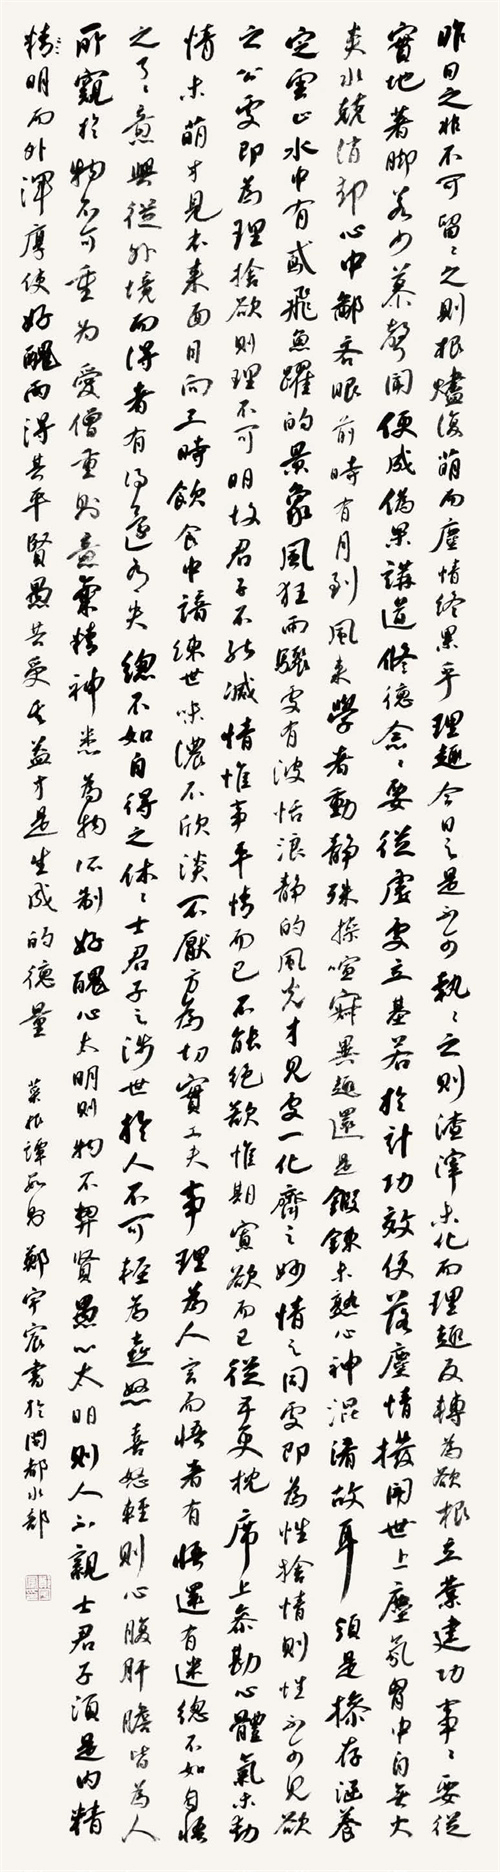 昨日之非不可留〻之則根燼復萌而塵情終累乎理趣今日之是不可執〻之則渣滓未化而理趣反轉為欲根立業建功事〻要從
實地著脚若少慕聲聞便成偽果講道修德念〻要從虛處立基若於計功效便落塵情撥開世上塵氛胷中自無火
炎水兢消却心中鄙吝眼前時有月到風來學者動靜殊操喧寂異趣還是鍛鍊未熟心神混淆故耳須是操存涵養
定雲止水中有鳶飛魚躍的景象風狂雨驟處有波恬浪靜的風光才見處一化齊之妙情之同處即為性捨情則性不可見欲
之公處即為理捨欲則理不可明故君子不能滅情惟事平情而已不能絕欲惟期寡欲而已從五更枕席上叅勘心體氣未動
情未萌才見本來面目向三時飲食中諳練世味濃不欣淡不厭方為切實工夫事理為人言而悟者有悟還有迷總不如自悟
之了〻意興從外境而得者有得還有失總不如自得之休〻士君子之涉世於人不可輕為喜怒喜怒輕則心腹肝膽皆為人
所窺於物不可重為愛僧重則意氣精神悉為物所制好醜心太明則物不契賢愚心太明則人不親士君子須是內精
精明而外渾厚使好醜兩得其平賢愚共受其益才是生成的德量 菜根譚數則 鄭宇宸書於閩都水部